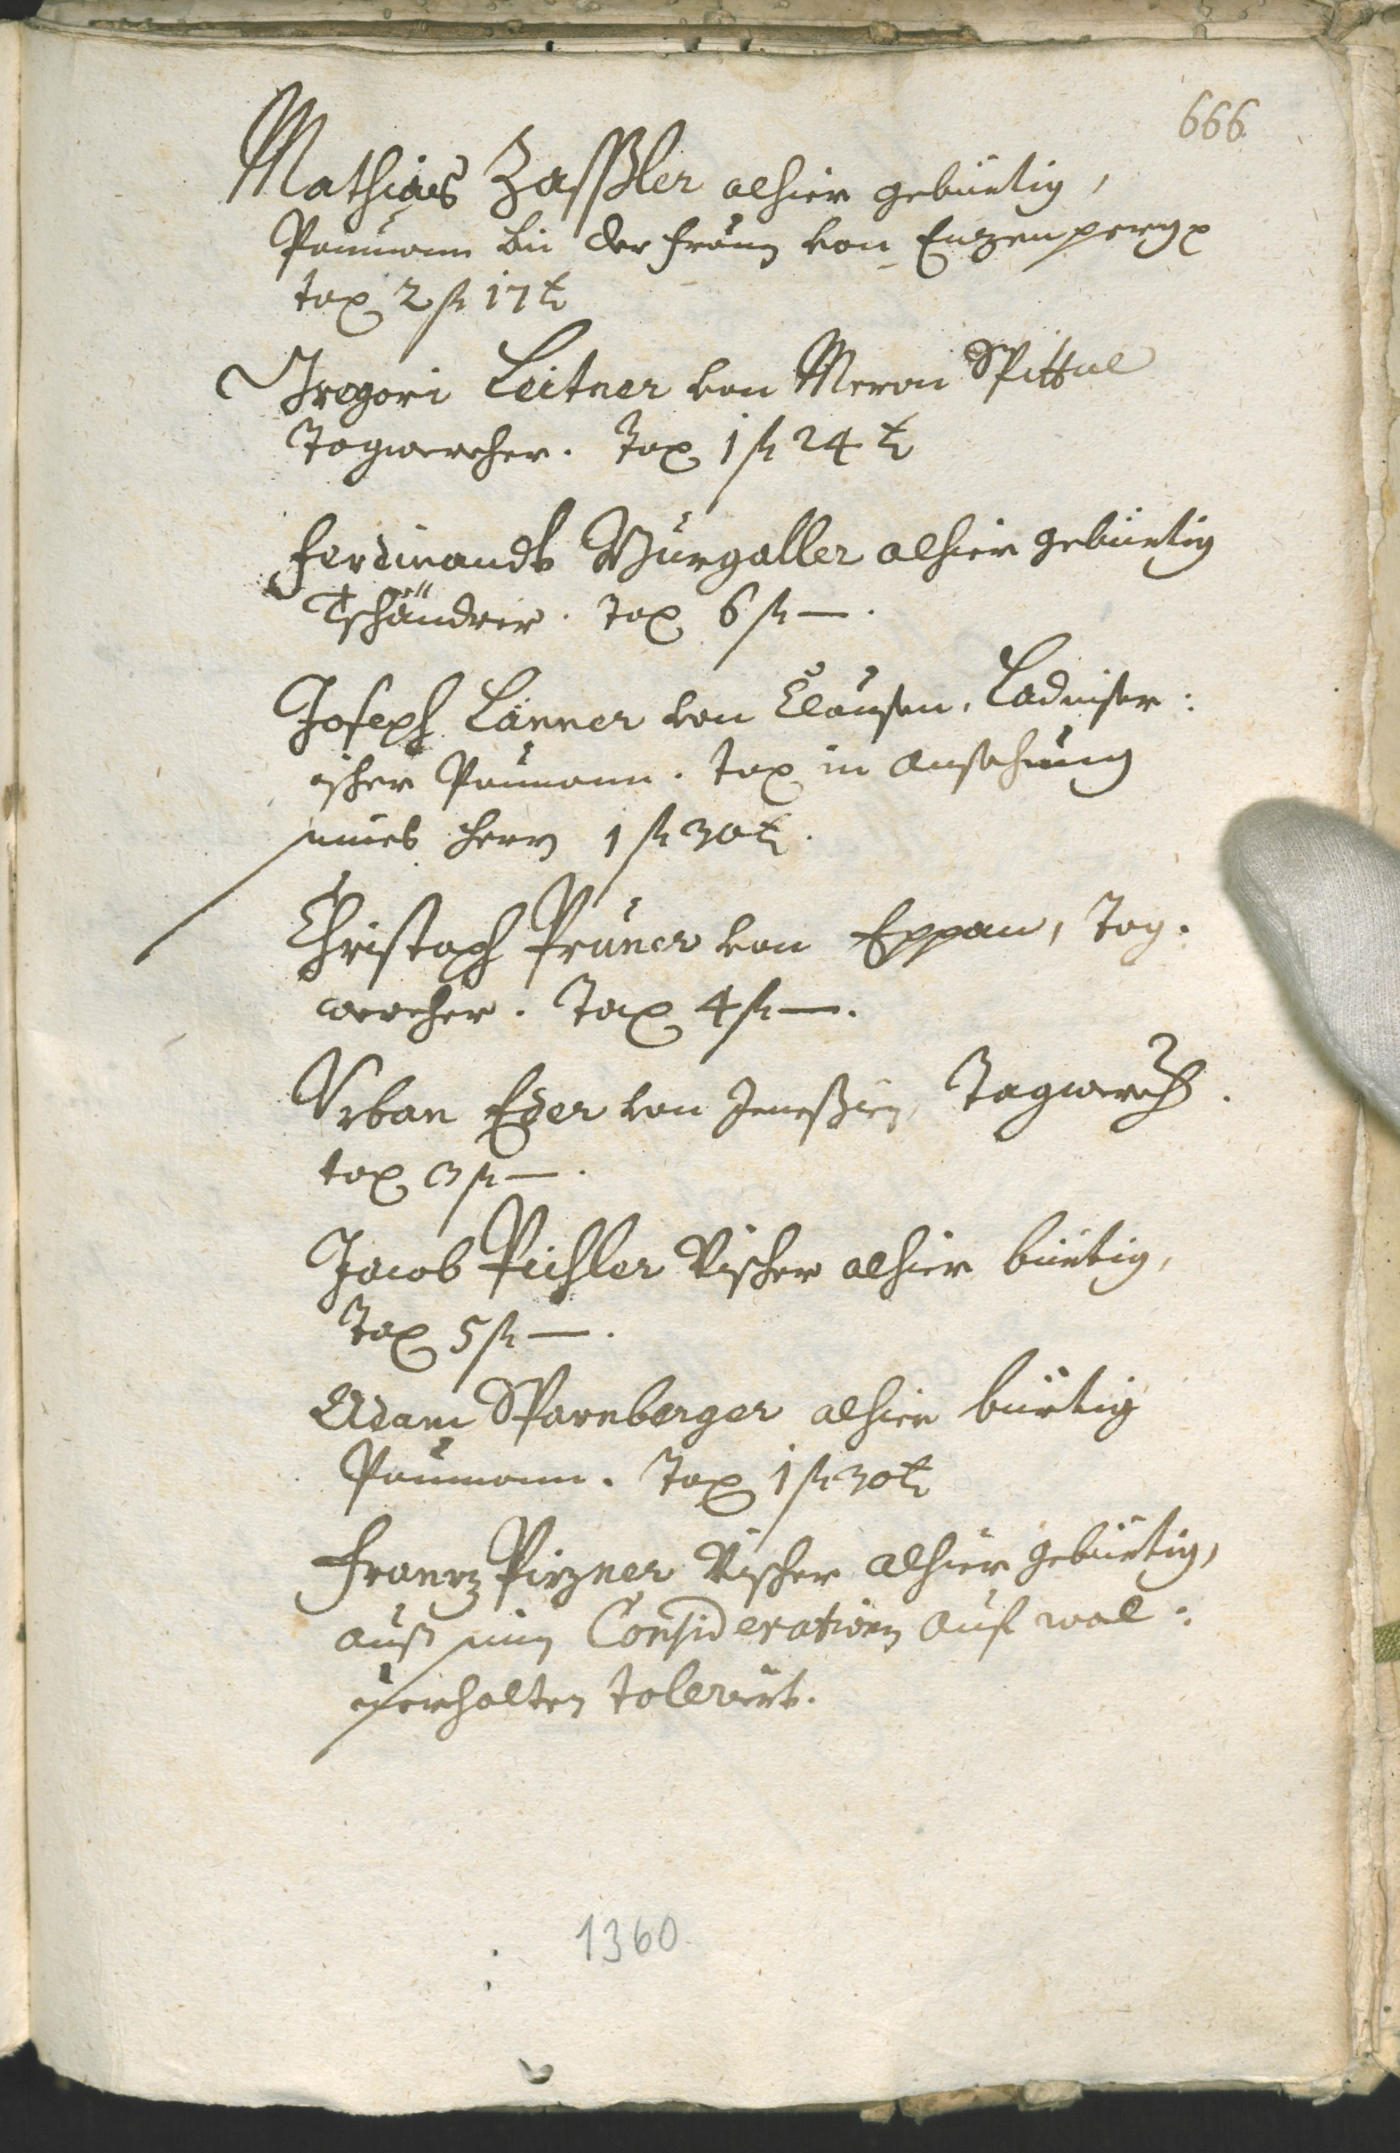 666
Mathias Zassler alhier gebürtig,
Paumann bei der Fraun von Enzenperg
tax 2 fl 17 k
Gregori Leitner von Meran Spittal
Tagwercher. Tax 1 fl 24 k
Ferdinandt Murgaller alhier gebürtig
Tschändrer. Tax 6 fl —.
Joseph Länner von Clausen, Ladiniser:
ischer Paumann. tax in Ansehung
seines Herrn 1 fl 30 k.
Christoph Pruner von Eppan, Tag:
wercher. Tax 4 fl —.
Urban Eder von Jenessien, Tagwerch.
tax 3 fl —.
Jacob Pichler Vischer alhier bürtig,
Tax 5 fl —.
Adam Sparnberger alhier bürtig
Paumann. Tax 1 fl 30 k
Frantz Pirzner Vischer alhier gebürtig,
auß ein Consideration auf wol:
verhalten toleriert.
1360